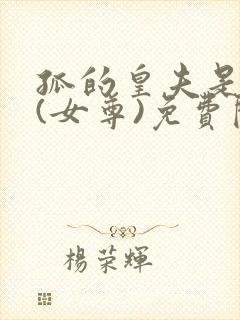 孤的皇夫是
(女尊)免費
楊荣輝